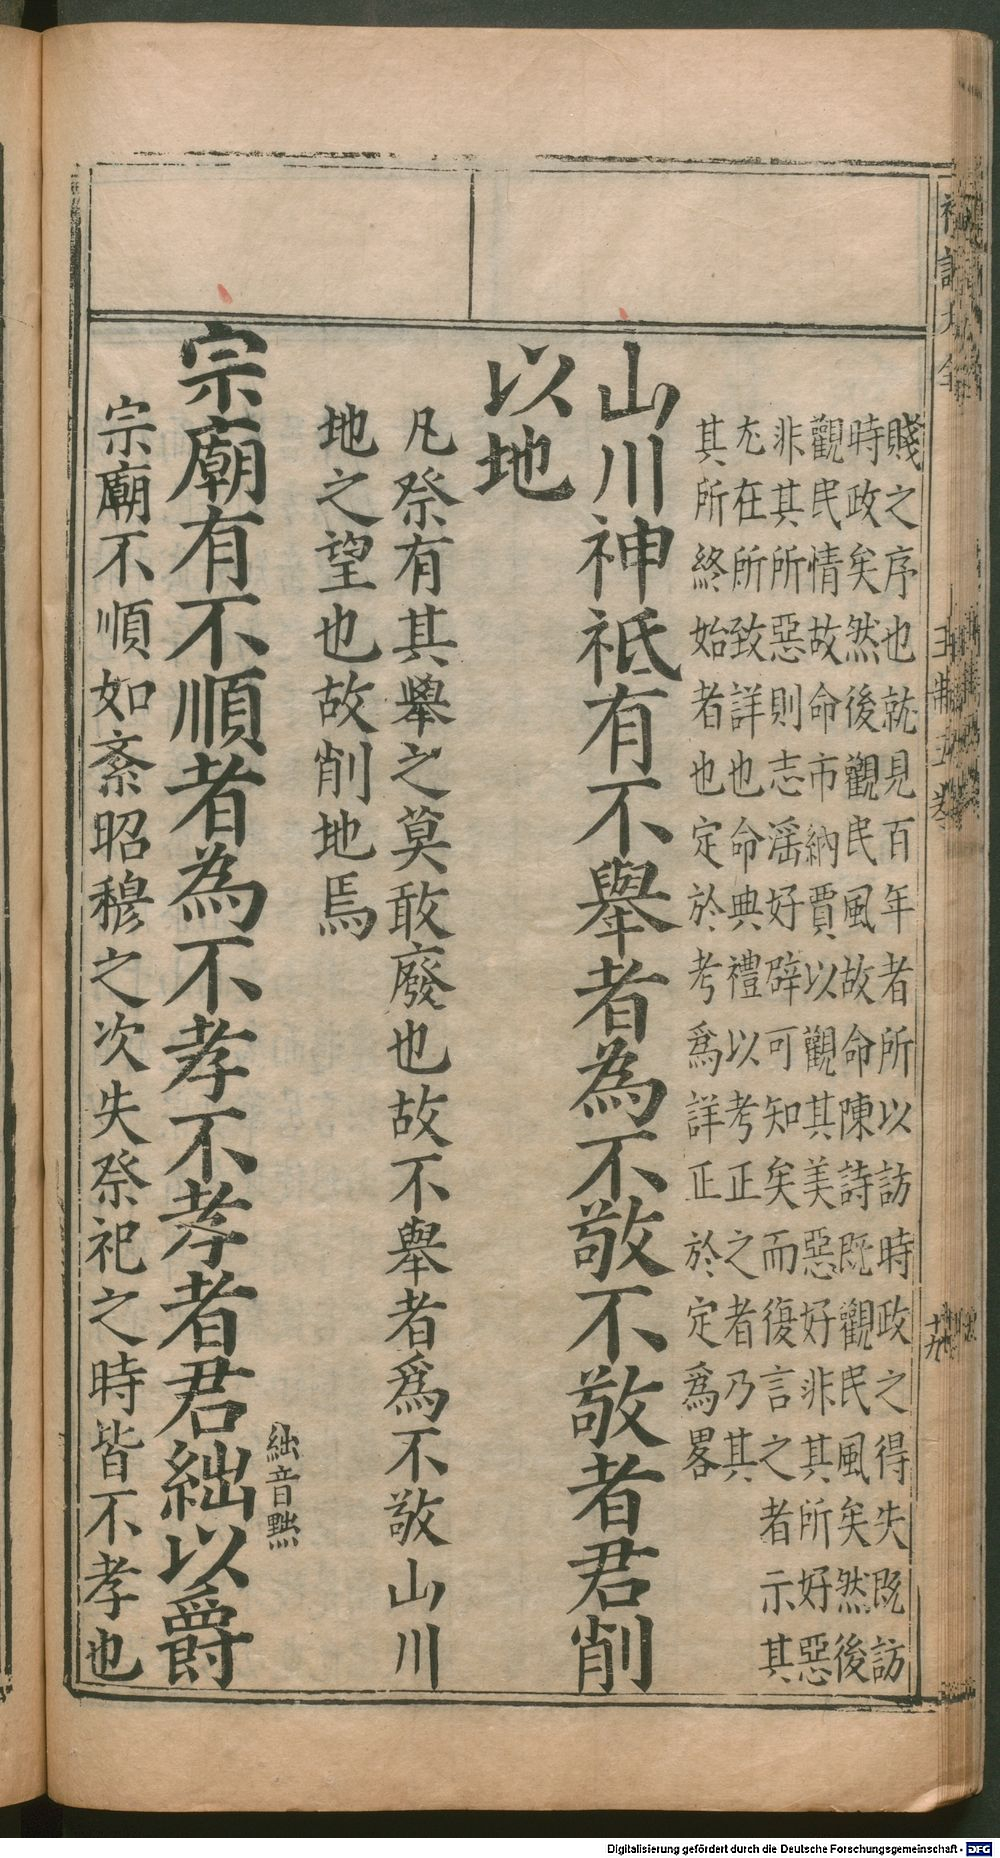 賤之序也就見百年者所以訪時政之得失既訪
時政矣然後觀民風故命陳詩既觀民風矣然後
觀民情故命市納賈以觀其美惡好非其所好惡
非其所惡則志滛好辟可知矣而復言之者示其
尤在所致詳也命典禮以考正之者乃其
其所終始者也定於考爲詳正於定爲畧
山川神祗有不舉者為不敬不敬者君削
以地
凡祭有其舉之莫敢廢也故不舉者爲不敬山川
地之望也故削地焉
宗廟有不順者為不孝不孝者君絀以爵
絀音黜
宗廟不順如紊昭穆之次失祭祀之時皆不孝也
十九
Digitalisierung gefördert durch die Deutsche Forschungsgemeinschaft - DFG